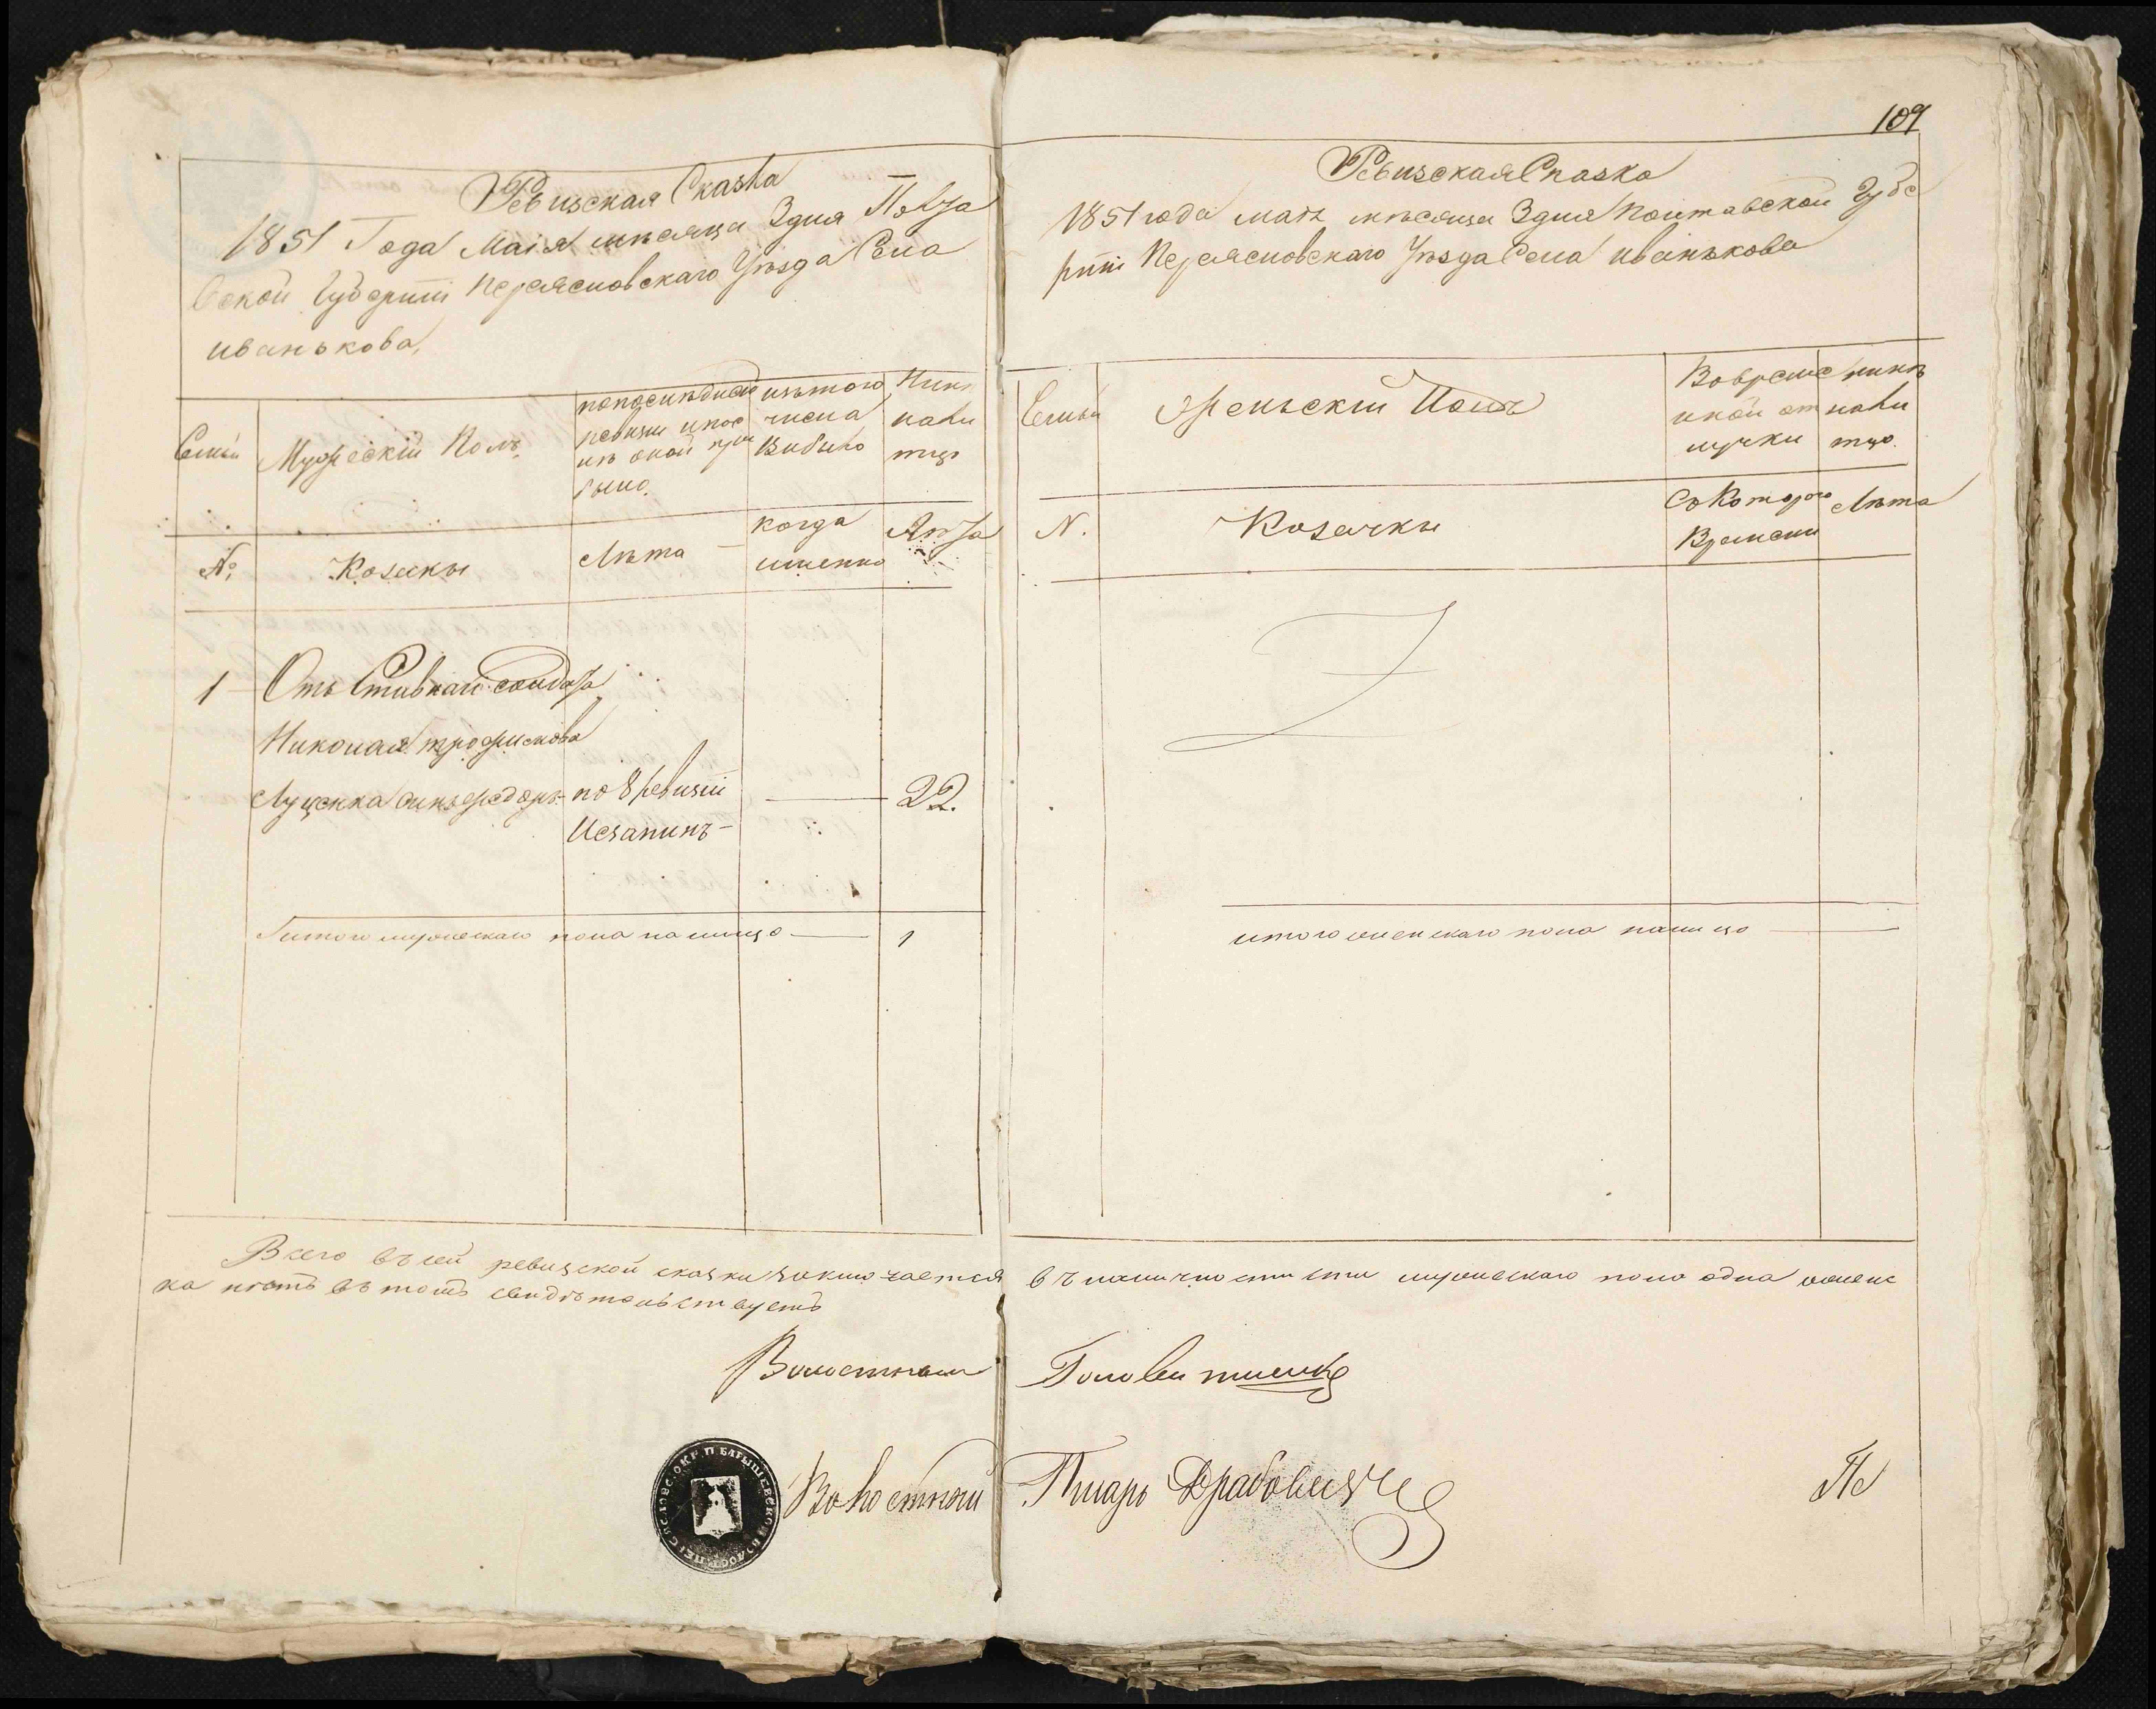 109
Ревизская Сказка
1851 Года Маія мѣсяца 3 дня Полта
вской Губерніи Переясловского Уѣзда Села
иванькова,
Семьи
Мужескій Полъ
попоследней
ревизіи и пос
лѣ оной при
было.
изътого
числа
Выбыло
Нинѣ
нали
тцо
№
Козаки
Лѣта
когда
именно
Лѣта
1
Отъ Ставнаго солдата
Николая трофимова
Луценка синъ федоръ по 8 ревизіи 22.
Незапинъ
Итого мужескаго пола налицо 1
Ревизская Сказка
1851 года маія мѣсяца 3 дня Полтавской Губе
рніи Переясловскаго Уѣзда Села иванькова
Семьи
Женскій Полъ
Вовреме
нной от
лучки
нинѣ
нали
тцо.
N.
Козачки
Съ Которого
Времени
Лѣта
итого женскаго пола налицо
Всего въ сей ревизской сказки заключается въ наличности мужескаго пола одна женс
ка нѣтъ въ томъ свидѣтельствуетъ
Волостной Голова
Волостной Писарь Драбовичъ
Пе